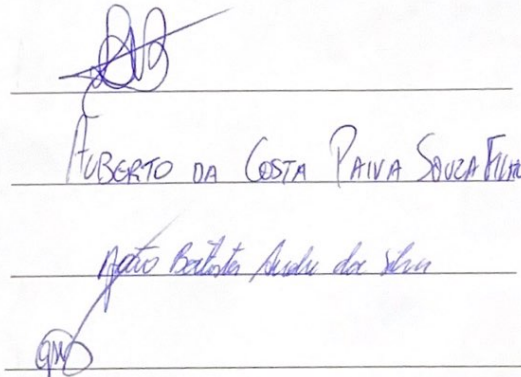 ALBERTO DA COSTA PAIVA SOUZA FILHO
João Batista André da Silva